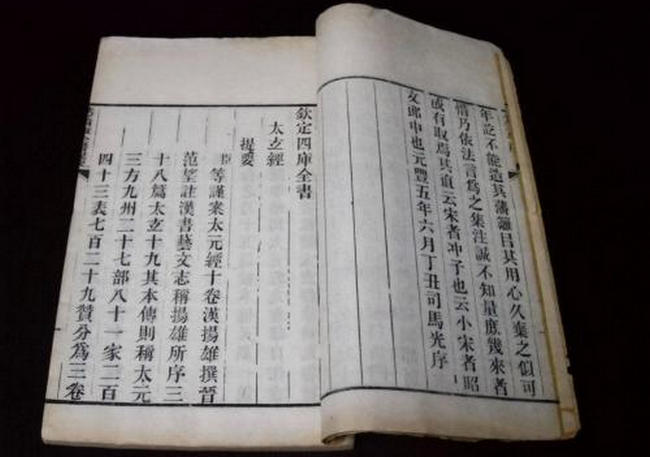 年訖不能造其藩籬㠯其用心久棄之似可
惜乃依法言爲之集注誠不知量庶幾來者
或有取焉其直云宋者冲子也云小宋者昭
文郎中也元豐五年六月丁丑司馬光序
欽定四庫全書
太玄經
提要
臣等謹案太元經十卷漢揚雄撰晉
范望註漢書藝文志稱揚雄所序三
十八篇太玄十九其本傳則稱太元
三方九州二十七部八十一家二百
四十三表七百二十九贊分爲三卷